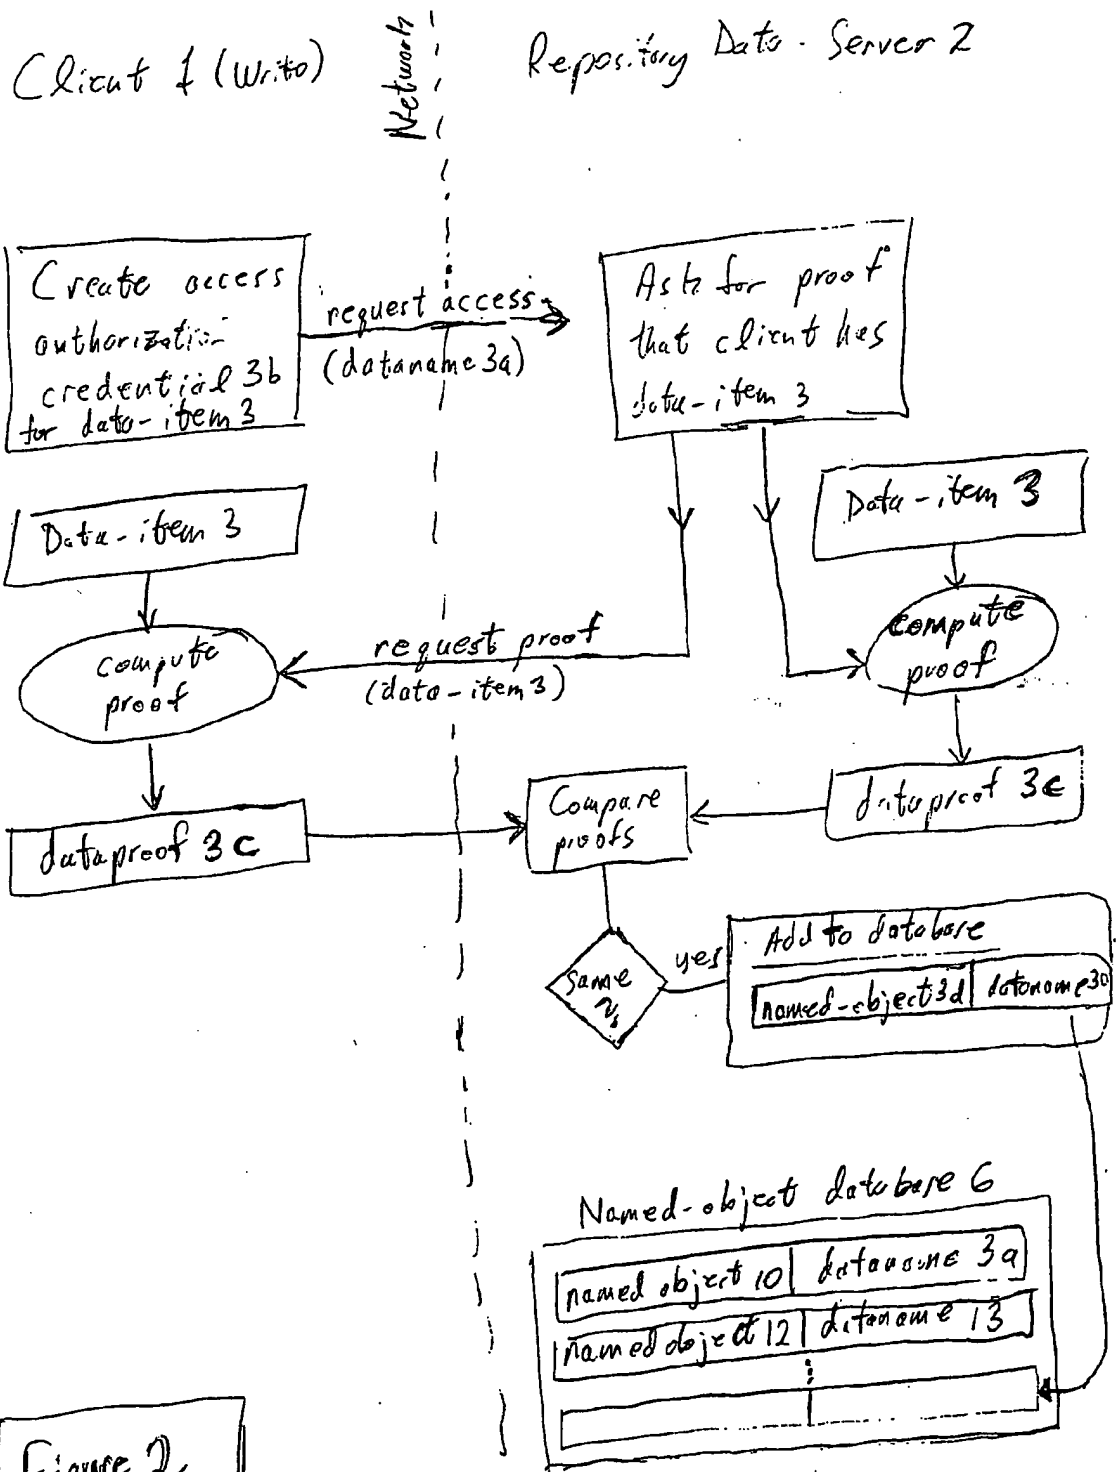 Client 1 (Write)
Network
Repository Data-Server 2
Create access
authorization
credential 3b
for data-item 3
request access
(dataname 3a)
Ask for proof
that client has
data-item 3
Data-item 3
Data-item 3
compute
proof
request proof
(data-item 3)
compute
proof
dataproof 3c
Compare
proofs
dataproof 3e
same
?
yes
Add to database
named-object 3d dataname 3a
Named-object database 6
named object 10 dataname 3a
named object 12 dataname 13
Figure 2